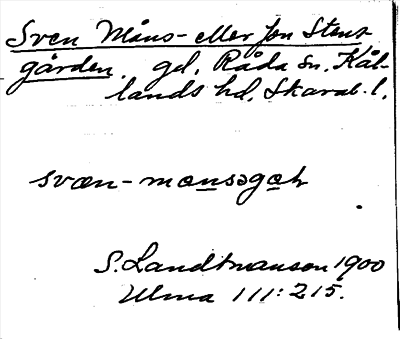 Sven Måns- eller Jon Stens-
gården. gd. Råda sn. Kål-
lands hd. Skarab. l.
svæn-mansəgaḷı
S. Landtmanson 1900
Ulma 111:215.